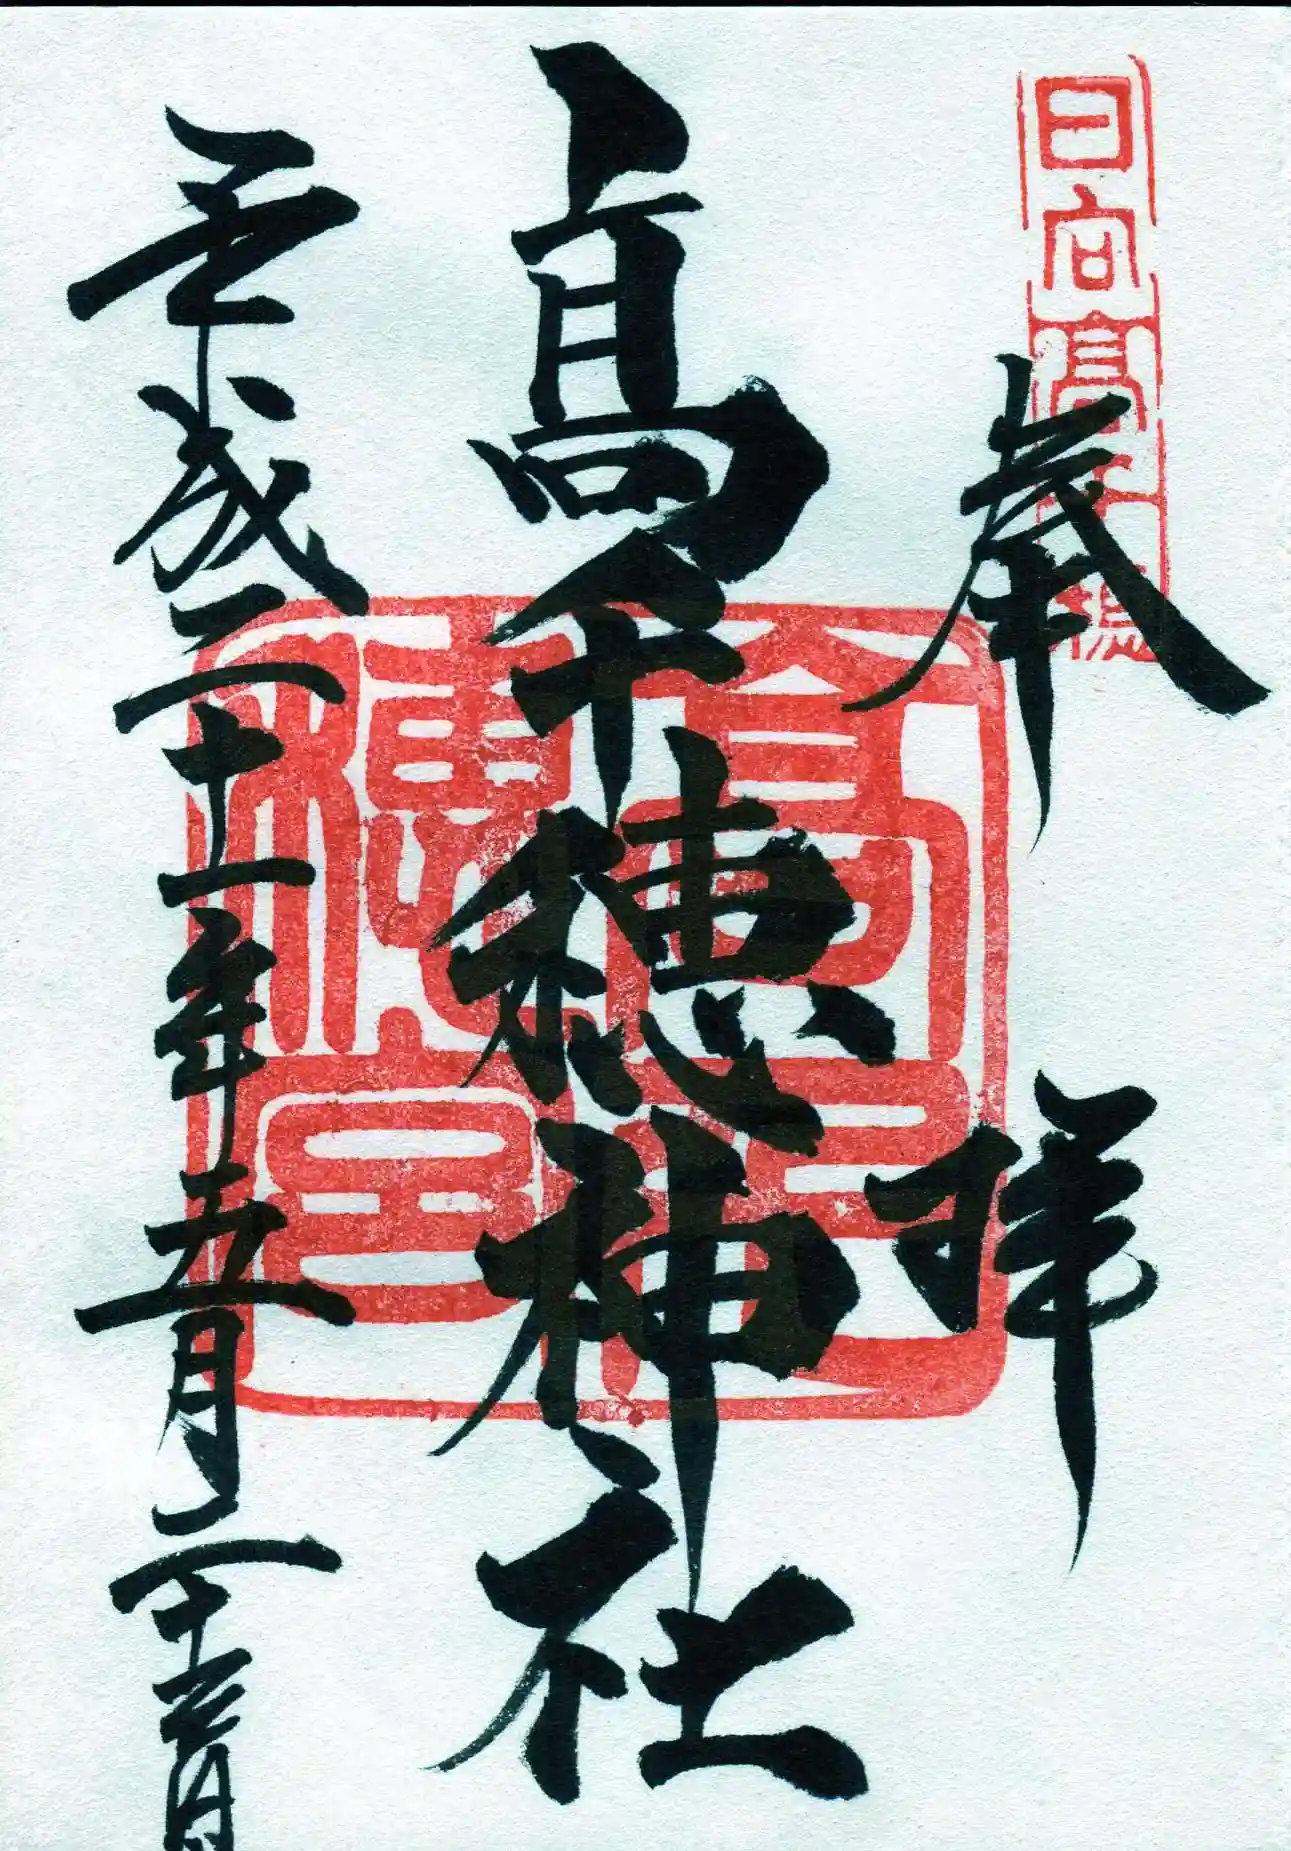 日向高千穂
奉拝
髙千穂神社
平成二十一年五月二十三日